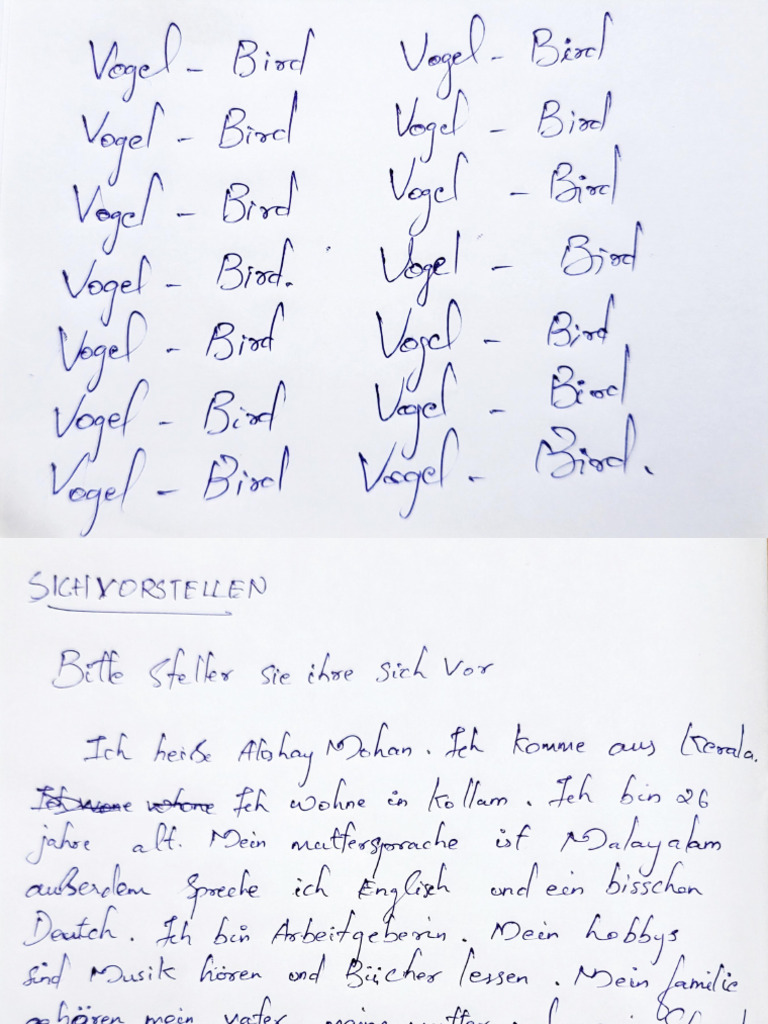 Vogel - Bird Vogel - Bird
Vogel - Bird Vogel - Bird
Vogel - Bird Vogel - Bird
Vogel - Bird. Vogel - Bird
Vogel - Bird Vogel - Bird
Vogel - Bird Vogel - Bird
Vogel - Bird Vogel - Bird.
SICH VORSTELLEN
Bitte steller sie ihre sich vor
Ich heiße Mohan. Ich komme aus Kerala.
Ich wohne in Kollam. Ich bin 26
jahre alt. Mein muttersprache ist Malayalam
außerdem spreche ich Englisch und ein bisschen
Deutch. Ich bin Arbeitgeberin. Mein hobbys
sind Musik hören und Bücher lessen. Mein familie
gehören mein vater, meine mutter